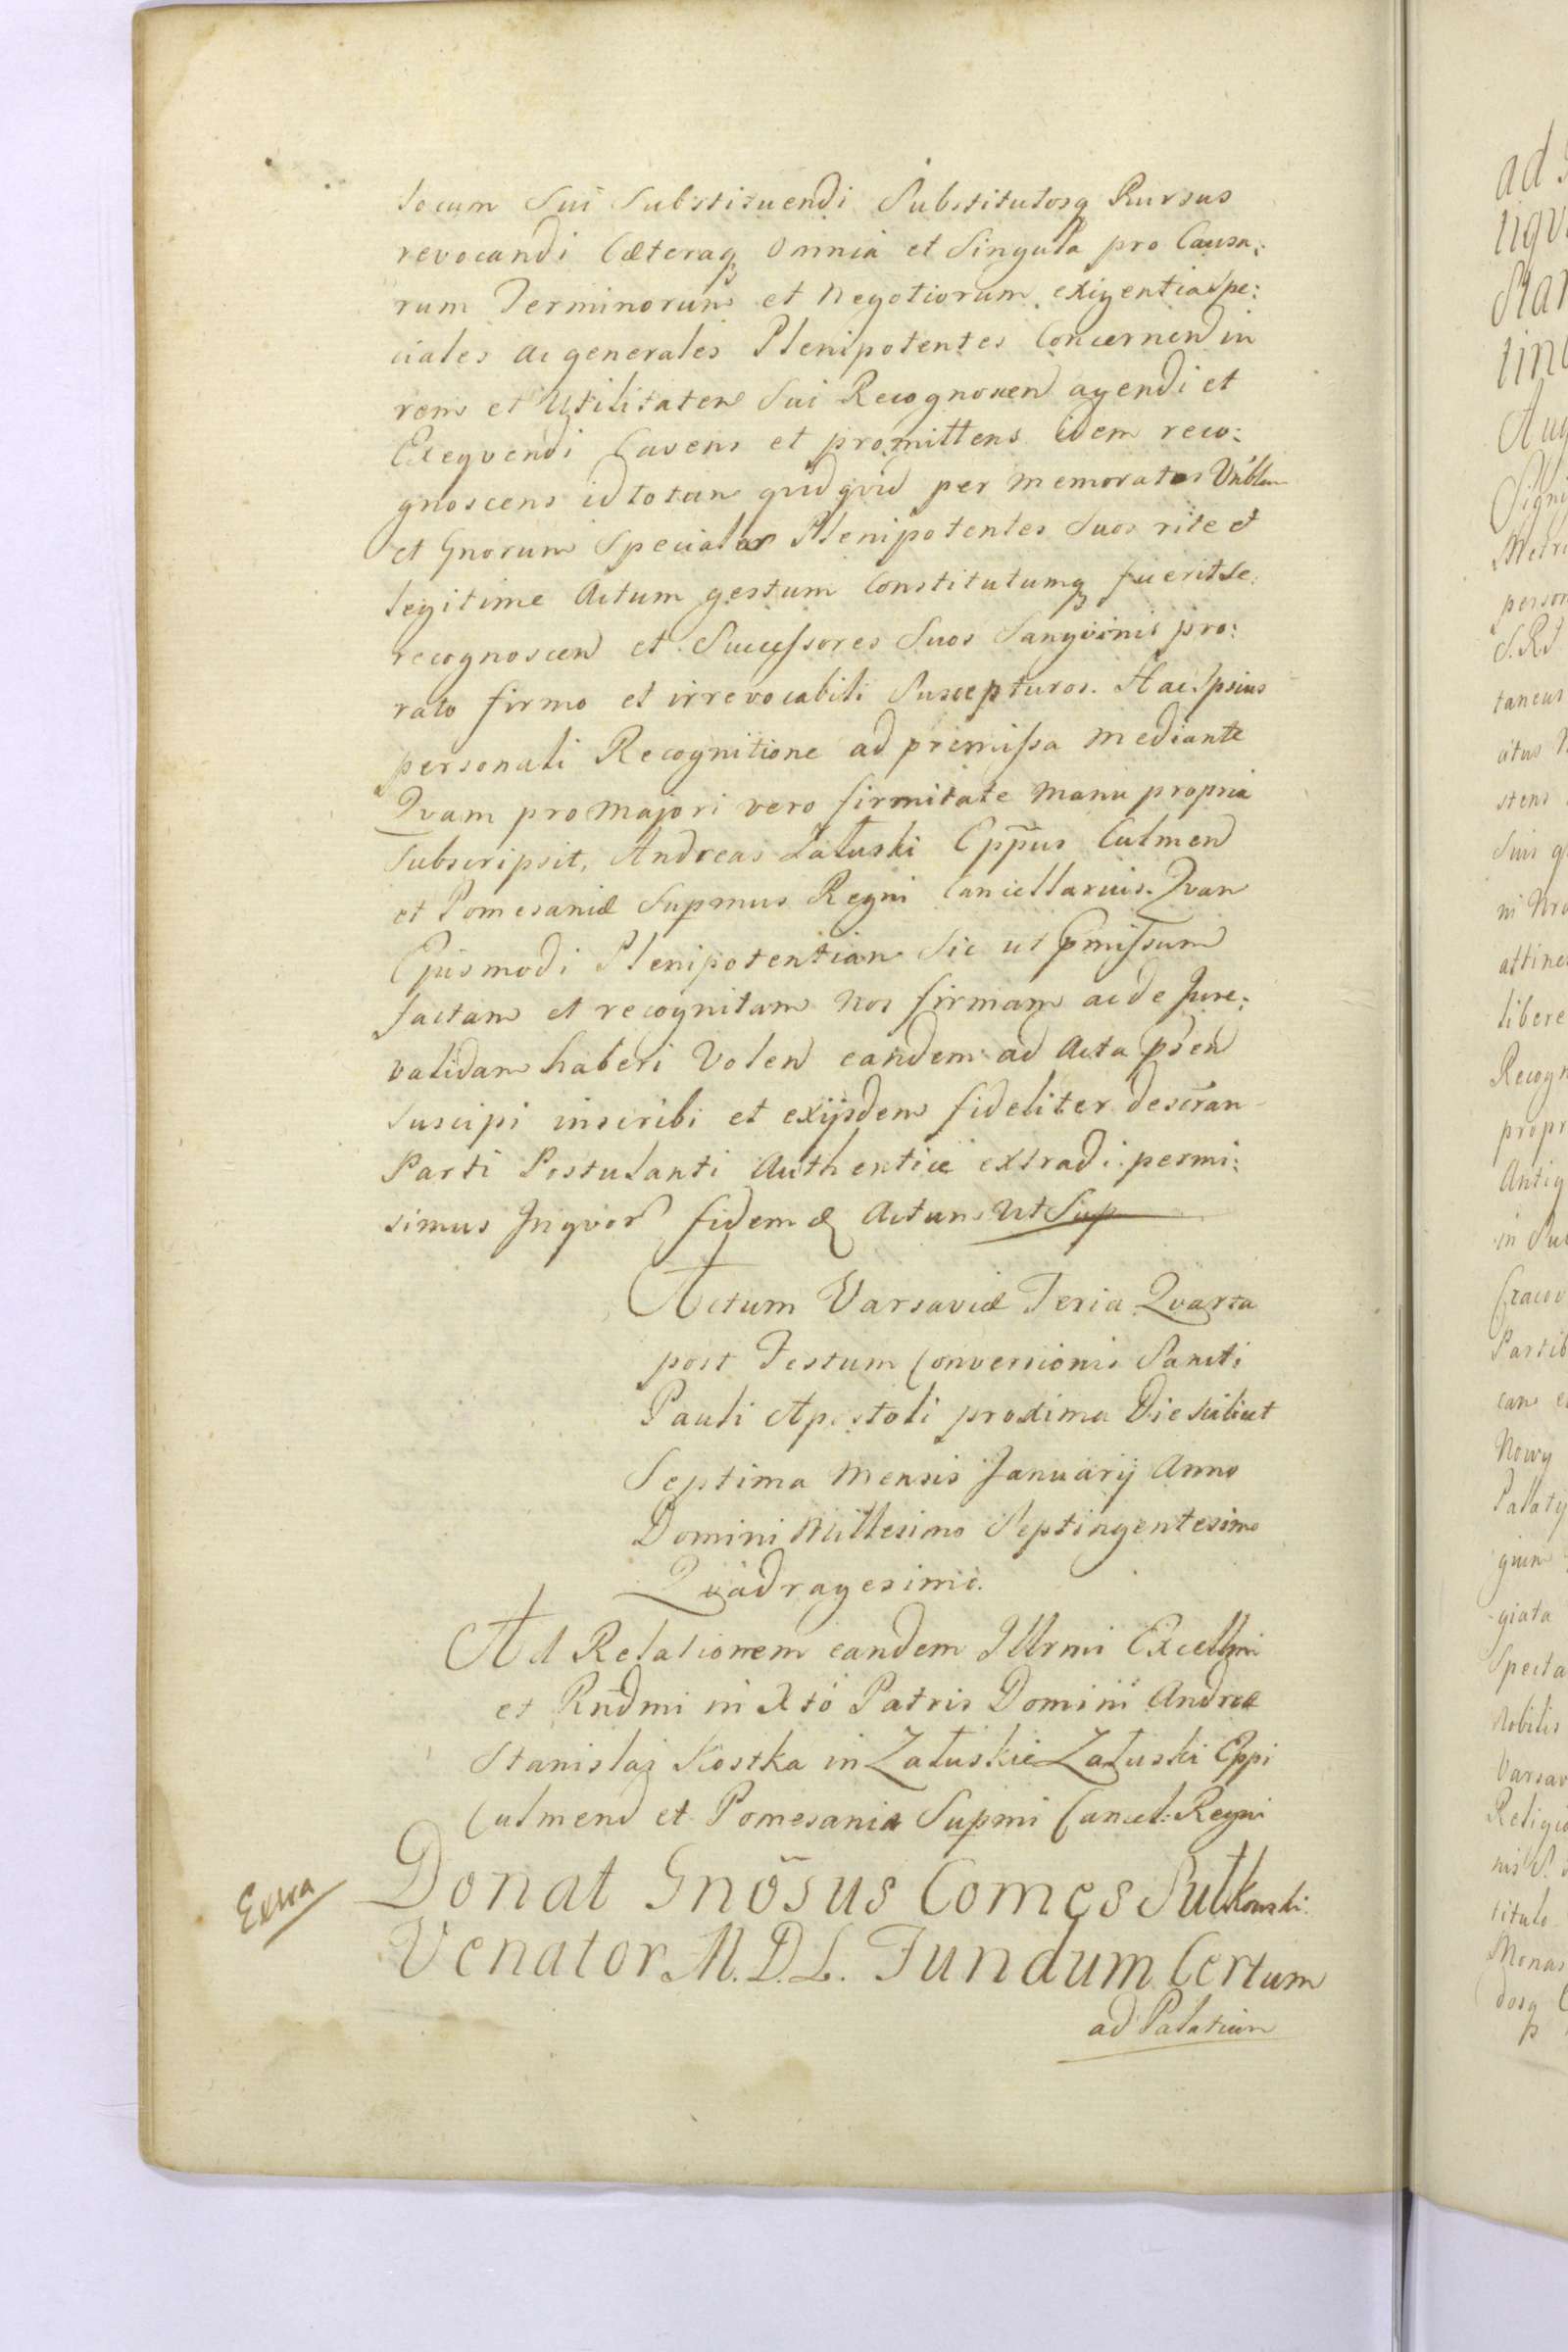 locum Sui Substituendi Substitutosq Rursus
revocandi Cæteraq Omnia et Singula pro Causa:
rum Terminorum et Negotiorum exigentia Spe:
ciales ac generales Plenipotentes Concernen in
rem et Utilitatem Sui Recognoscen agendi et
Exeqvendi Cavens et promittens idem reco:
gnoscens id totum qvidqvid per memoratos
et Gnorum Speciales Plenipotentes Suos rite et
legitime Actum gestum Constitutumq fuerit se
recognoscen et Successores Suos Sangvinis pro:
rato firmo et irrevocabili Suscepturos. Hac Ipsius
personali Recognitione ad premissa mediante
Qvam pro majori vero firmitate manu propria
Subscripsit, Andreas Załuski Eppus Culmen
et Pomesaniæ Supmus Regni Cancellarius. Qvam
Ejusmodi Plenipotentiam Sic ut pmissum
factam et recognitam Nos firmam ac de Jure:
validam haberi Volen eandem ad Acta psen
Suscipi inscribi et exijsdem fideliter descran
Parti Postulanti Authentice extradi permi:
simus Inqvor fidem & Actum Ut Sup
Actum Varsaviæ Feria Qvarta
post Festum Conversionis Sancti
Pauli Apostoli proxima Die scilicet
Septima Mensis Januarij Anno
Domini Millesimo Septingentesimo
Quadragesimo.
Ad Relationem eandem Illrmi Excellmi
et Rndmi in Xto Patris Domini Andreæ
Stanislai Kostka in Załuskie Załuski Eppi
Culmen et Pomesaniæ Supmi Cancel: Regni
Extra
Donat Gnosus Comes Sułkowski
Venator M.D.L. Fundum Certum
ad Palatium